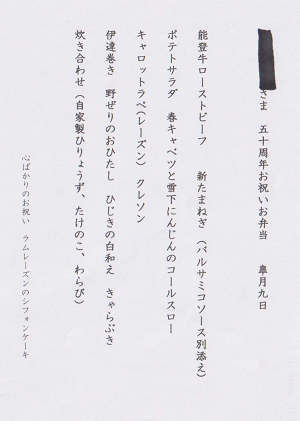 さま　五十周年お祝いお弁当　皐月九日
能登牛ローストビーフ　新たまねぎ　（バルサミコソース別添え）
ポテトサラダ　春キャベツと雪下にんじんのコールスロー
キャロットラペ（レーズン）　クレソン
伊達巻き　野ぜりのおひたし　ひじきの白和え　きゃらぶき
炊き合わせ（自家製ひりょうず、たけのこ、わらび）
心ばかりのお祝い　ラムレーズンのシフォンケーキ